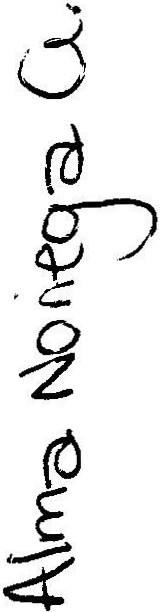 Alma Noriega a.